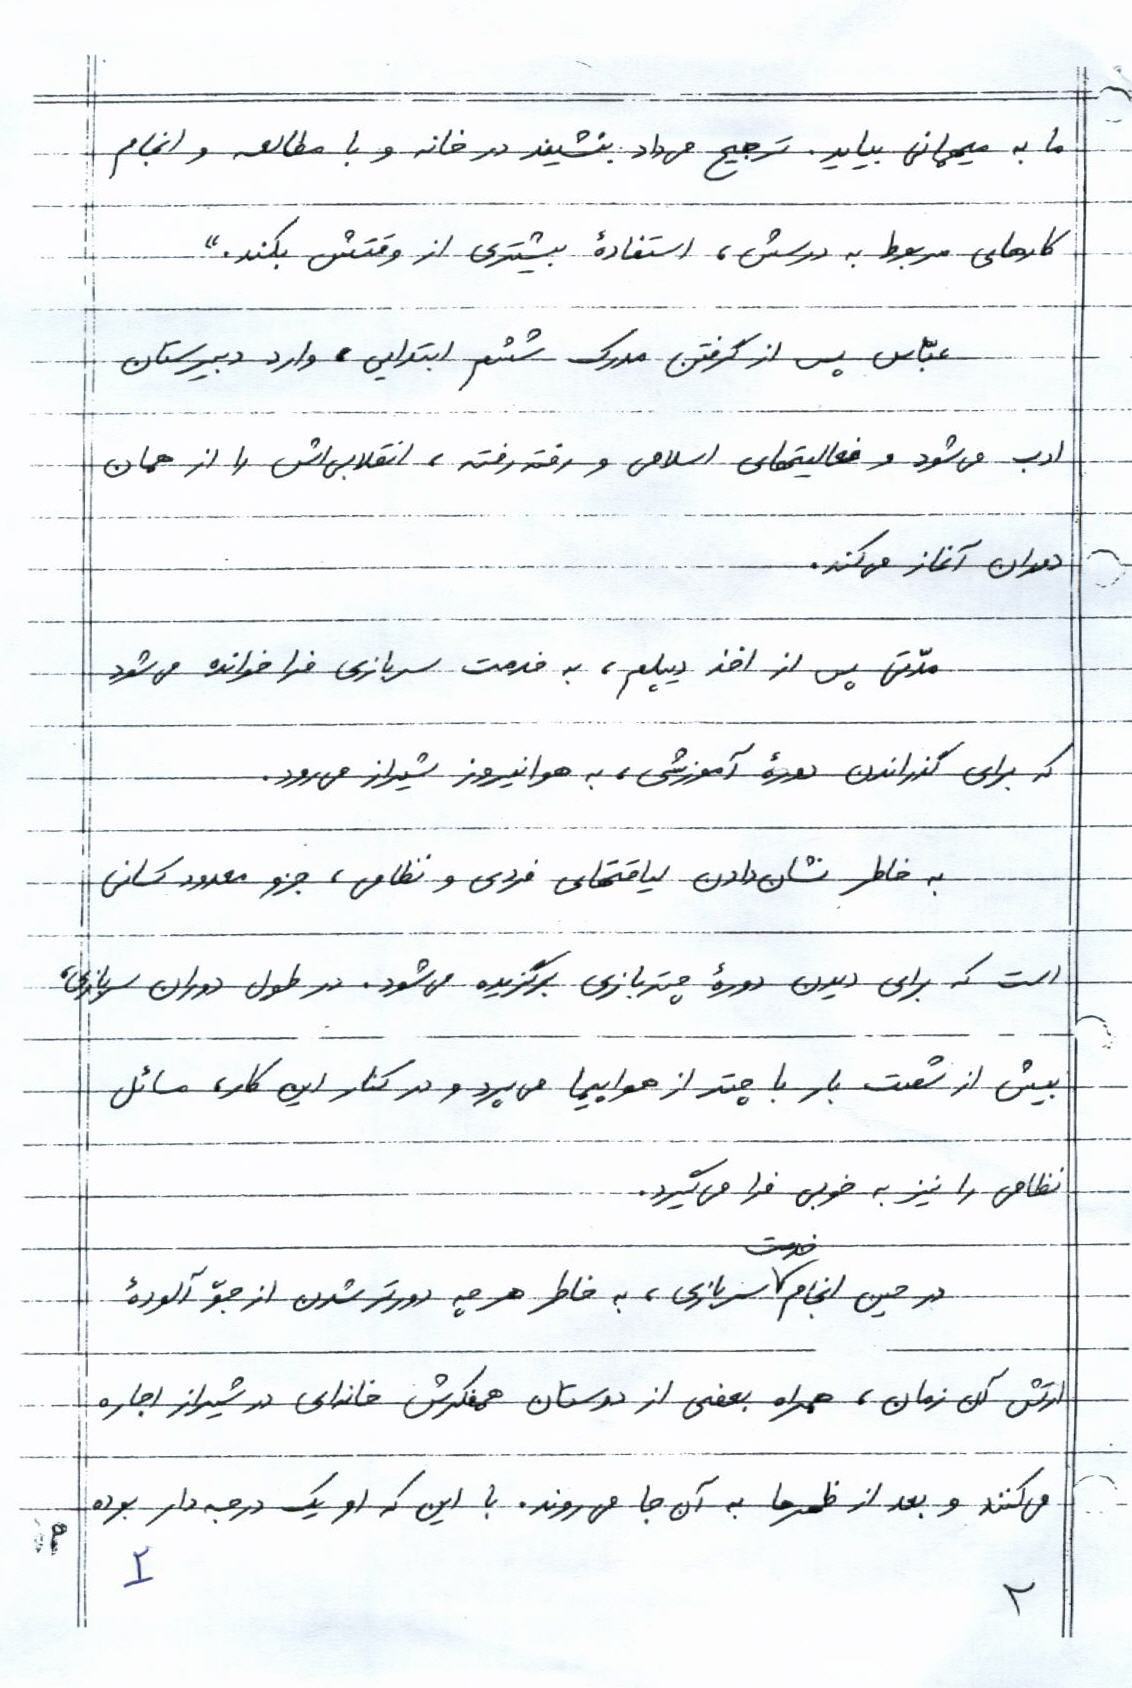 ما به میهمانی بیاید. ترجیح می‌داد بنشیند در خانه و با مطالعه و انجام
کارهای مربوط به درسش، استفادهٔ بیشتری از وقتش بکند.»
عبّاس پس از گرفتن مدرک ششم ابتدایی، وارد دبیرستان
ادب می‌شود و فعالیتهای اسلامی و رفته‌رفته، انقلابی‌اش را از همان
دوران آغاز می‌کند.
مدّتی پس از اخذ دیپلم، به خدمت سربازی فرا خوانده می‌شود
که برای گذراندن دورهٔ آموزشی، به هوانیروز شیراز می‌رود.
به خاطر نشان‌دادن لیاقتهای فردی و نظامی، جزو معدود کسانی
است که برای دیدن دورهٔ چتربازی برگزیده می‌شود. در طول دوران سربازی،
بیش از شصت بار با چتر از هواپیما می‌پرد و در کنار این کار، مسائل
نظامی را نیز به خوبی فرا می‌گیرد.
خدمت
در حین انجام سربازی، به خاطر هر چه دورتر شدن از جوّ آلودهٔ
ارتش آن زمان، همراه بعضی از دوستان همفکرش خانه‌ای در شیراز اجاره
می‌کنند و بعد از ظهرها به آن جا می‌روند. با این که او یک درجه‌دار بوده
۲
۲